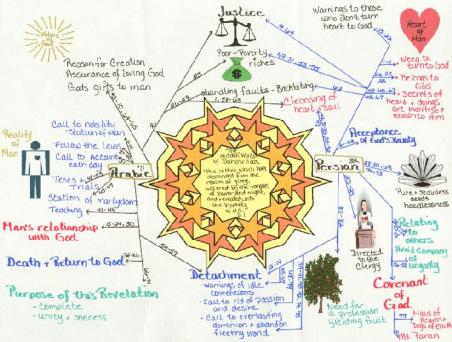 Justice
Warnings to those
who don't turn
heart to God
Heart
of
Man
Nature
of
God
Reason for Creation
Assurance of loving God
God's gifts to man
Poor-Poverty
riches
Need to
turn to God
Belongs to
God
Secrets of
heart + doings
are manifest +
known to Him
Sharing faults - Backbiting
Cleansing of
heart + soul
Reality
of
Man
Call to nobility
- Station of Man
Follow the laws
Call to Account
each day
Tests +
Trials
Arabic
Station of martyrdom
Teaching
The
Hidden Words
of Baha'u'llah
This is that which hath
descended from the
realm of glory,
uttered by the tongue
of power and might,
and revealed unto
the Prophets
of old
Persian
Acceptance
of God's Beauty
Pure + Stainless
deeds
heedlessness
Man's relationship
with God
Death + Return to God
Purpose of this Revelation
- complete
- unity + oneness
Detachment
- Warnings of idle
contentions
- Call to rid of passion
and desire
- Call to everlasting
dominion + abandon
fleeting world
Need for
a profession
yielding fruit
Directed
to the
Clergy
Relating
to
others
Avoid Company
of
ungodly
Covenant
of
God
Maid of
Heaven +
Days of Earth
Mt Paran